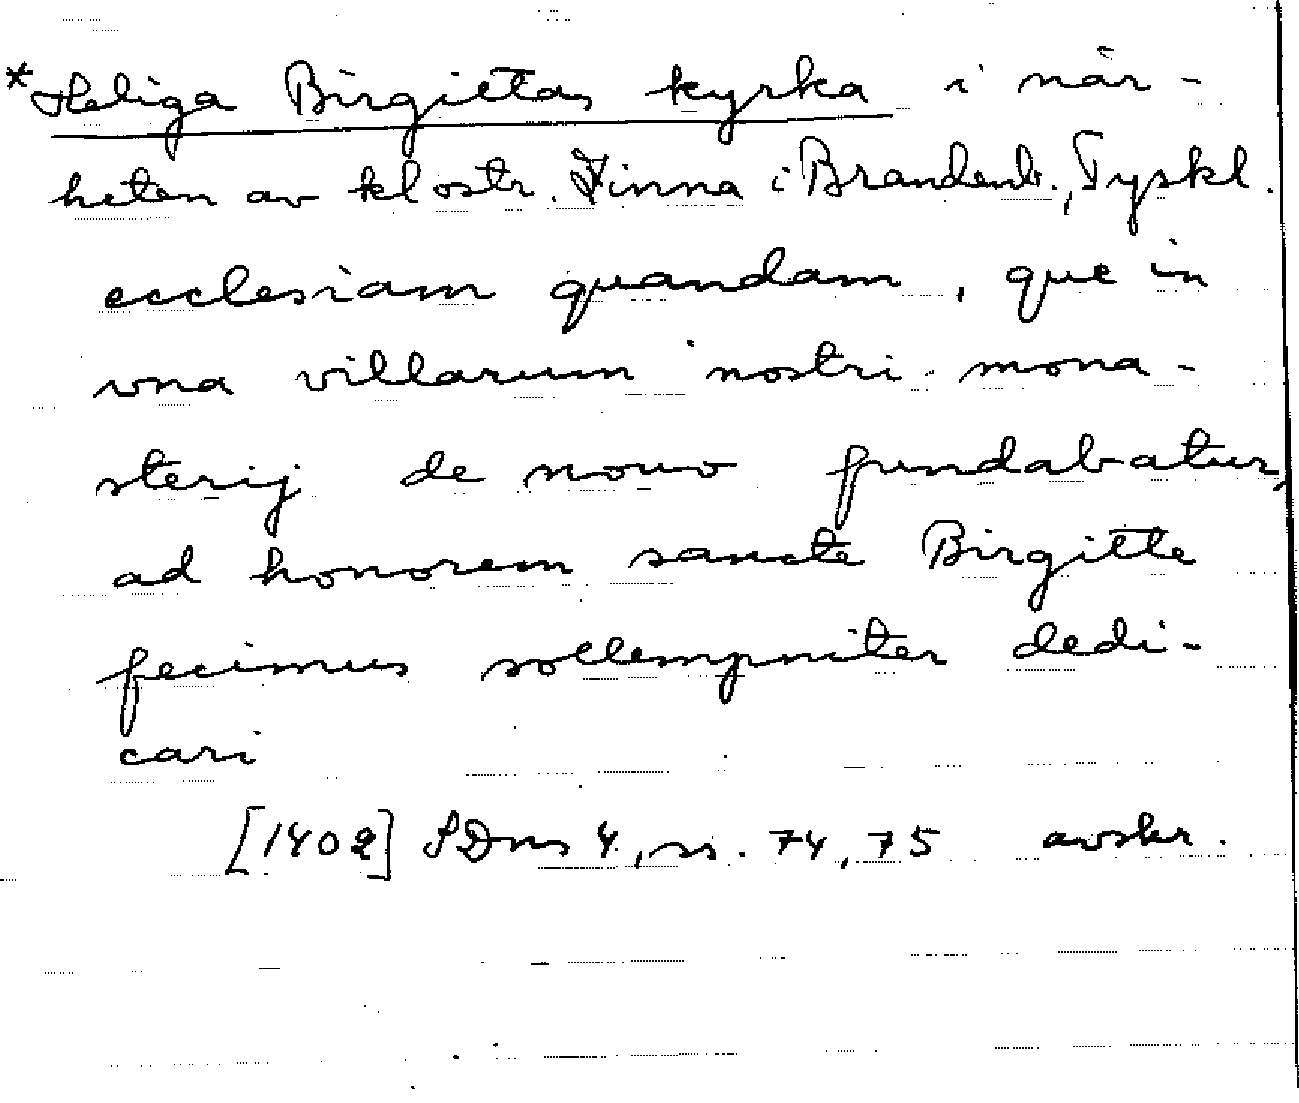 *Heliga Birgittas kyrka i när-
heten av klostr. Zinna i Brandenb., Tyskl.
ecclesiam quandam, que in
vna villarum nostri mona-
sterij de nouo fundabatur,
ad honorem sancte Birgitte
fecimus sollempniter dedi-
cari
[1402] SDns 4, ss. 74, 75 avskr.